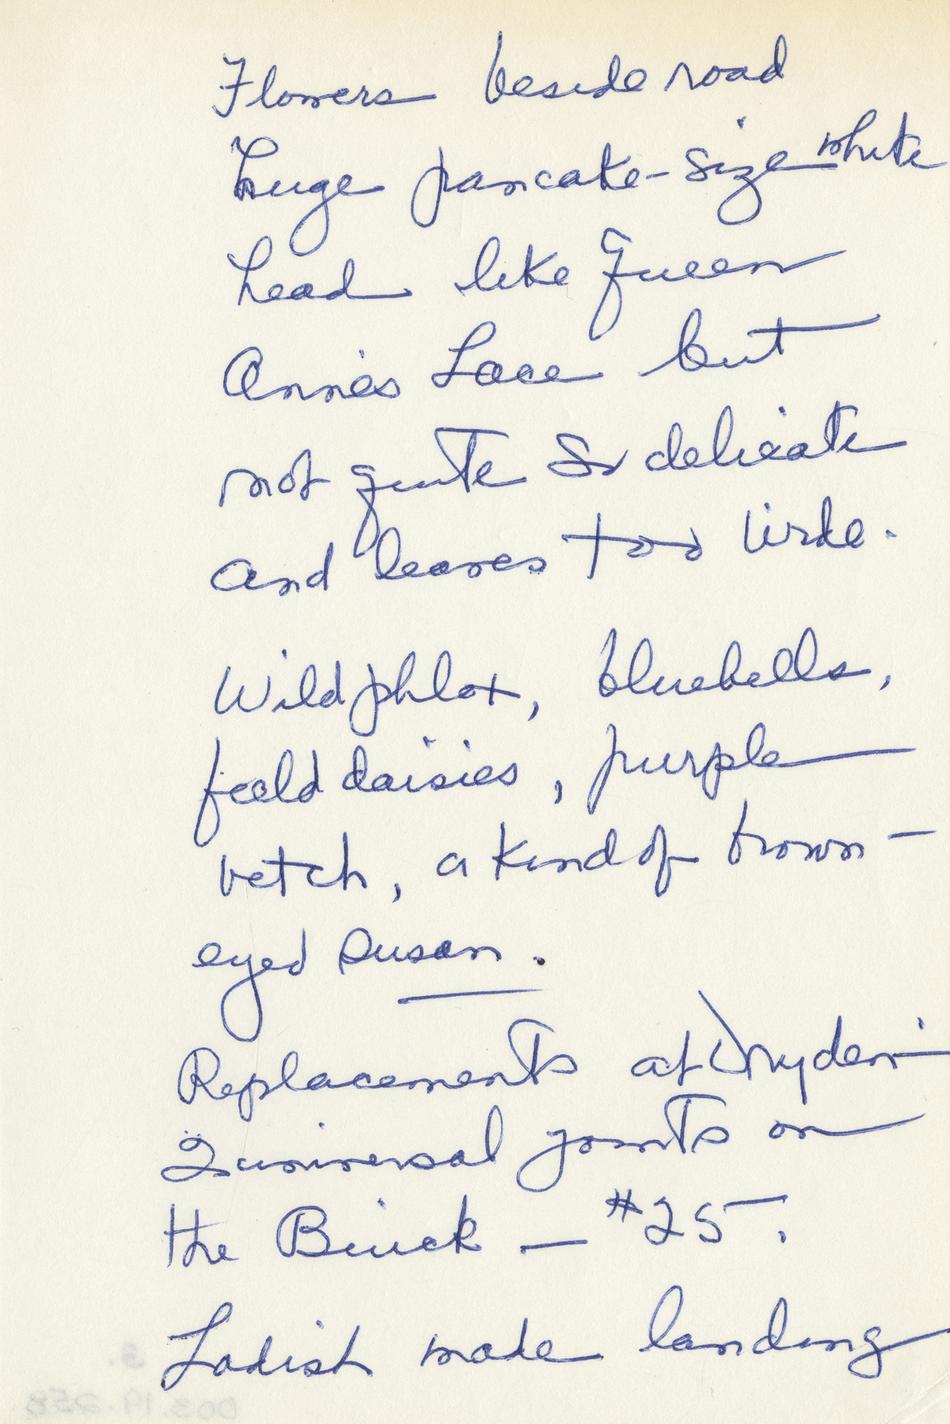 Flowers beside road
huge pancake-size white
head like Queen
Anne's Lace but
not quite so delicate
and leaves too wide.
Wild phlox, bluebells,
field daisies, purple
vetch, a kind of brown-
eyed Susan.
Replacements at Dryden-
2 universal joints on
the Buick — #25.
Ladish made landing